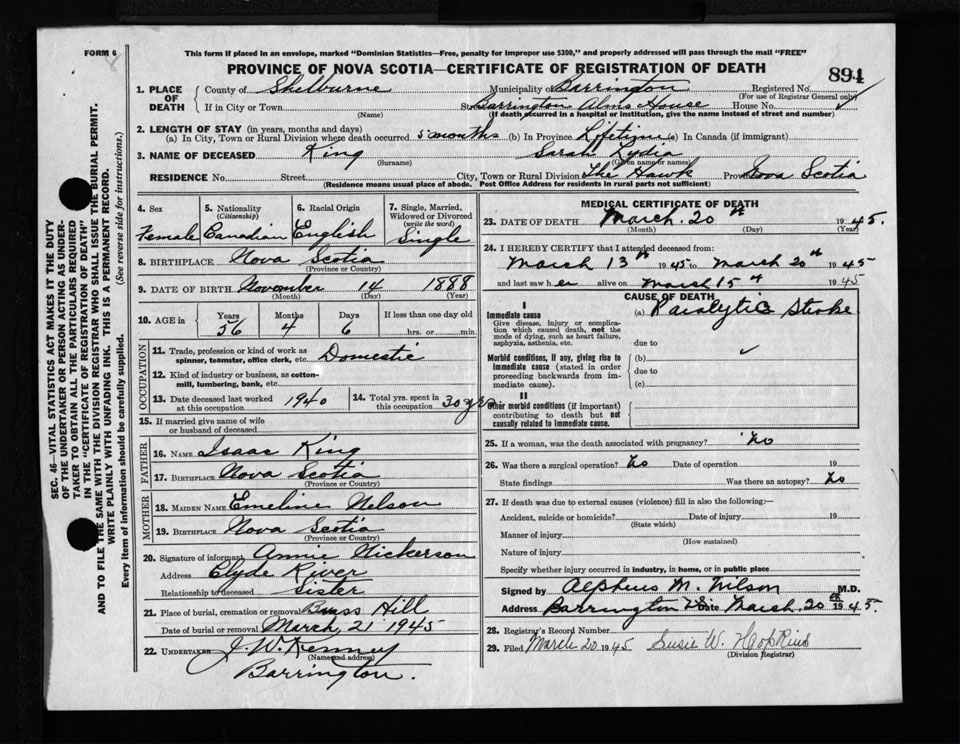 FORM 6
This form if placed in an envelope, marked "Dominion Statistics—Free, penalty for improper use $300," and properly addressed will pass through the mail "FREE"
PROVINCE OF NOVA SCOTIA—CERTIFICATE OF REGISTRATION OF DEATH
894
1. PLACE OF DEATH
County of Shelburne Municipality of Barrington Registered No.
(For use of Registrar General only)
If in City or Town St. Barrington Alms House House No.
(Name) (If death occurred in a hospital or institution, give the name instead of street and number)
2. LENGTH OF STAY (in years, months and days)
(a) In City, Town or Rural Division where death occurred 5 months (b) In Province Lifetime (c) in Canada (if immigrant)
3. NAME OF DECEASED King Sarah Lydia
(Surname) (Given name or names)
RESIDENCE No. Street City, Town or Rural Division The Hawk Province Nova Scotia
(Residence means usual place of abode. Post Office Address for residents in rural parts not sufficient)
4. Sex 5. Nationality (Citizenship) 6. Racial Origin 7. Single, Married, Widowed or Divorced (write the word)
Female Canadian English Single
8. BIRTHPLACE Nova Scotia
(Province or Country)
9. DATE OF BIRTH November 14 1888
(Month) (Day) (Year)
10. AGE in Years Months Days If less than one day old
56 4 6 hrs. or min.
OCCUPATION
11. Trade, profession or kind of work as spinner, teamster, office clerk, etc. Domestic
12. Kind of industry or business, as cotton-mill, lumbering, bank, etc.
13. Date deceased last worked at this occupation 1940 14. Total yrs. spent in this occupation 30 yrs
15. If married give name of wife or husband of deceased
FATHER
16. NAME Isaac King
17. BIRTHPLACE Nova Scotia
(Province or Country)
MOTHER
18. MAIDEN NAME Emeline Nelson
19. BIRTHPLACE Nova Scotia
(Province or Country)
20. Signature of informant Annie Nickerson
Address Clyde River
Relationship to deceased Sister
21. Place of burial, cremation or removal Bass Hill
Date of burial or removal March, 21 1945
22. UNDERTAKER J. W. Kenney
(Name and address)
Barrington.
MEDICAL CERTIFICATE OF DEATH
23. DATE OF DEATH March. 20th 1945.
(Month) (Day) (Year)
24. I HEREBY CERTIFY that I attended deceased from:
March 13th 1945 to March 20th 1945
and last saw her alive on March 15th 1945
CAUSE OF DEATH
I
Immediate cause (a) Paralytic Stroke
Give disease, injury or complication which caused death, not the mode of dying, such as heart failure, asphyxia, asthenia, etc.
due to
Morbid conditions, if any, giving rise to immediate cause (stated in order proceeding backwards from immediate cause).
(b)
due to
(c)
II
Other morbid conditions (if important) contributing to death but not causally related to immediate cause.
25. If a woman, was the death associated with pregnancy? No
26. Was there a surgical operation? No Date of operation 19
State findings Was there an autopsy? No
27. If death was due to external causes (violence) fill in also the following:—
Accident, suicide or homicide? Date of injury 19
(State which)
Manner of injury
(How sustained)
Nature of injury
Specify whether injury occurred in industry, in home, or in public place
Signed by Alpheus M. Wilson M.D.
Address Barrington NS Date March. 20 1945.
28. Registrar's Record Number
29. Filed March 20 1945 Susie W. Hopkins
(Division Registrar)
SEC. 46—VITAL STATISTICS ACT MAKES IT THE DUTY
OF THE UNDERTAKER OR PERSON ACTING AS UNDER-
TAKER TO OBTAIN ALL THE PARTICULARS REQUIRED
IN THE "CERTIFICATE OF REGISTRATION OF DEATH"
AND TO FILE THE SAME WITH THE DIVISION REGISTRAR WHO SHALL ISSUE THE BURIAL PERMIT.
WRITE PLAINLY WITH UNFADING INK. THIS IS A PERMANENT RECORD.
Every item of information should be carefully supplied. (See reverse side for instructions.)